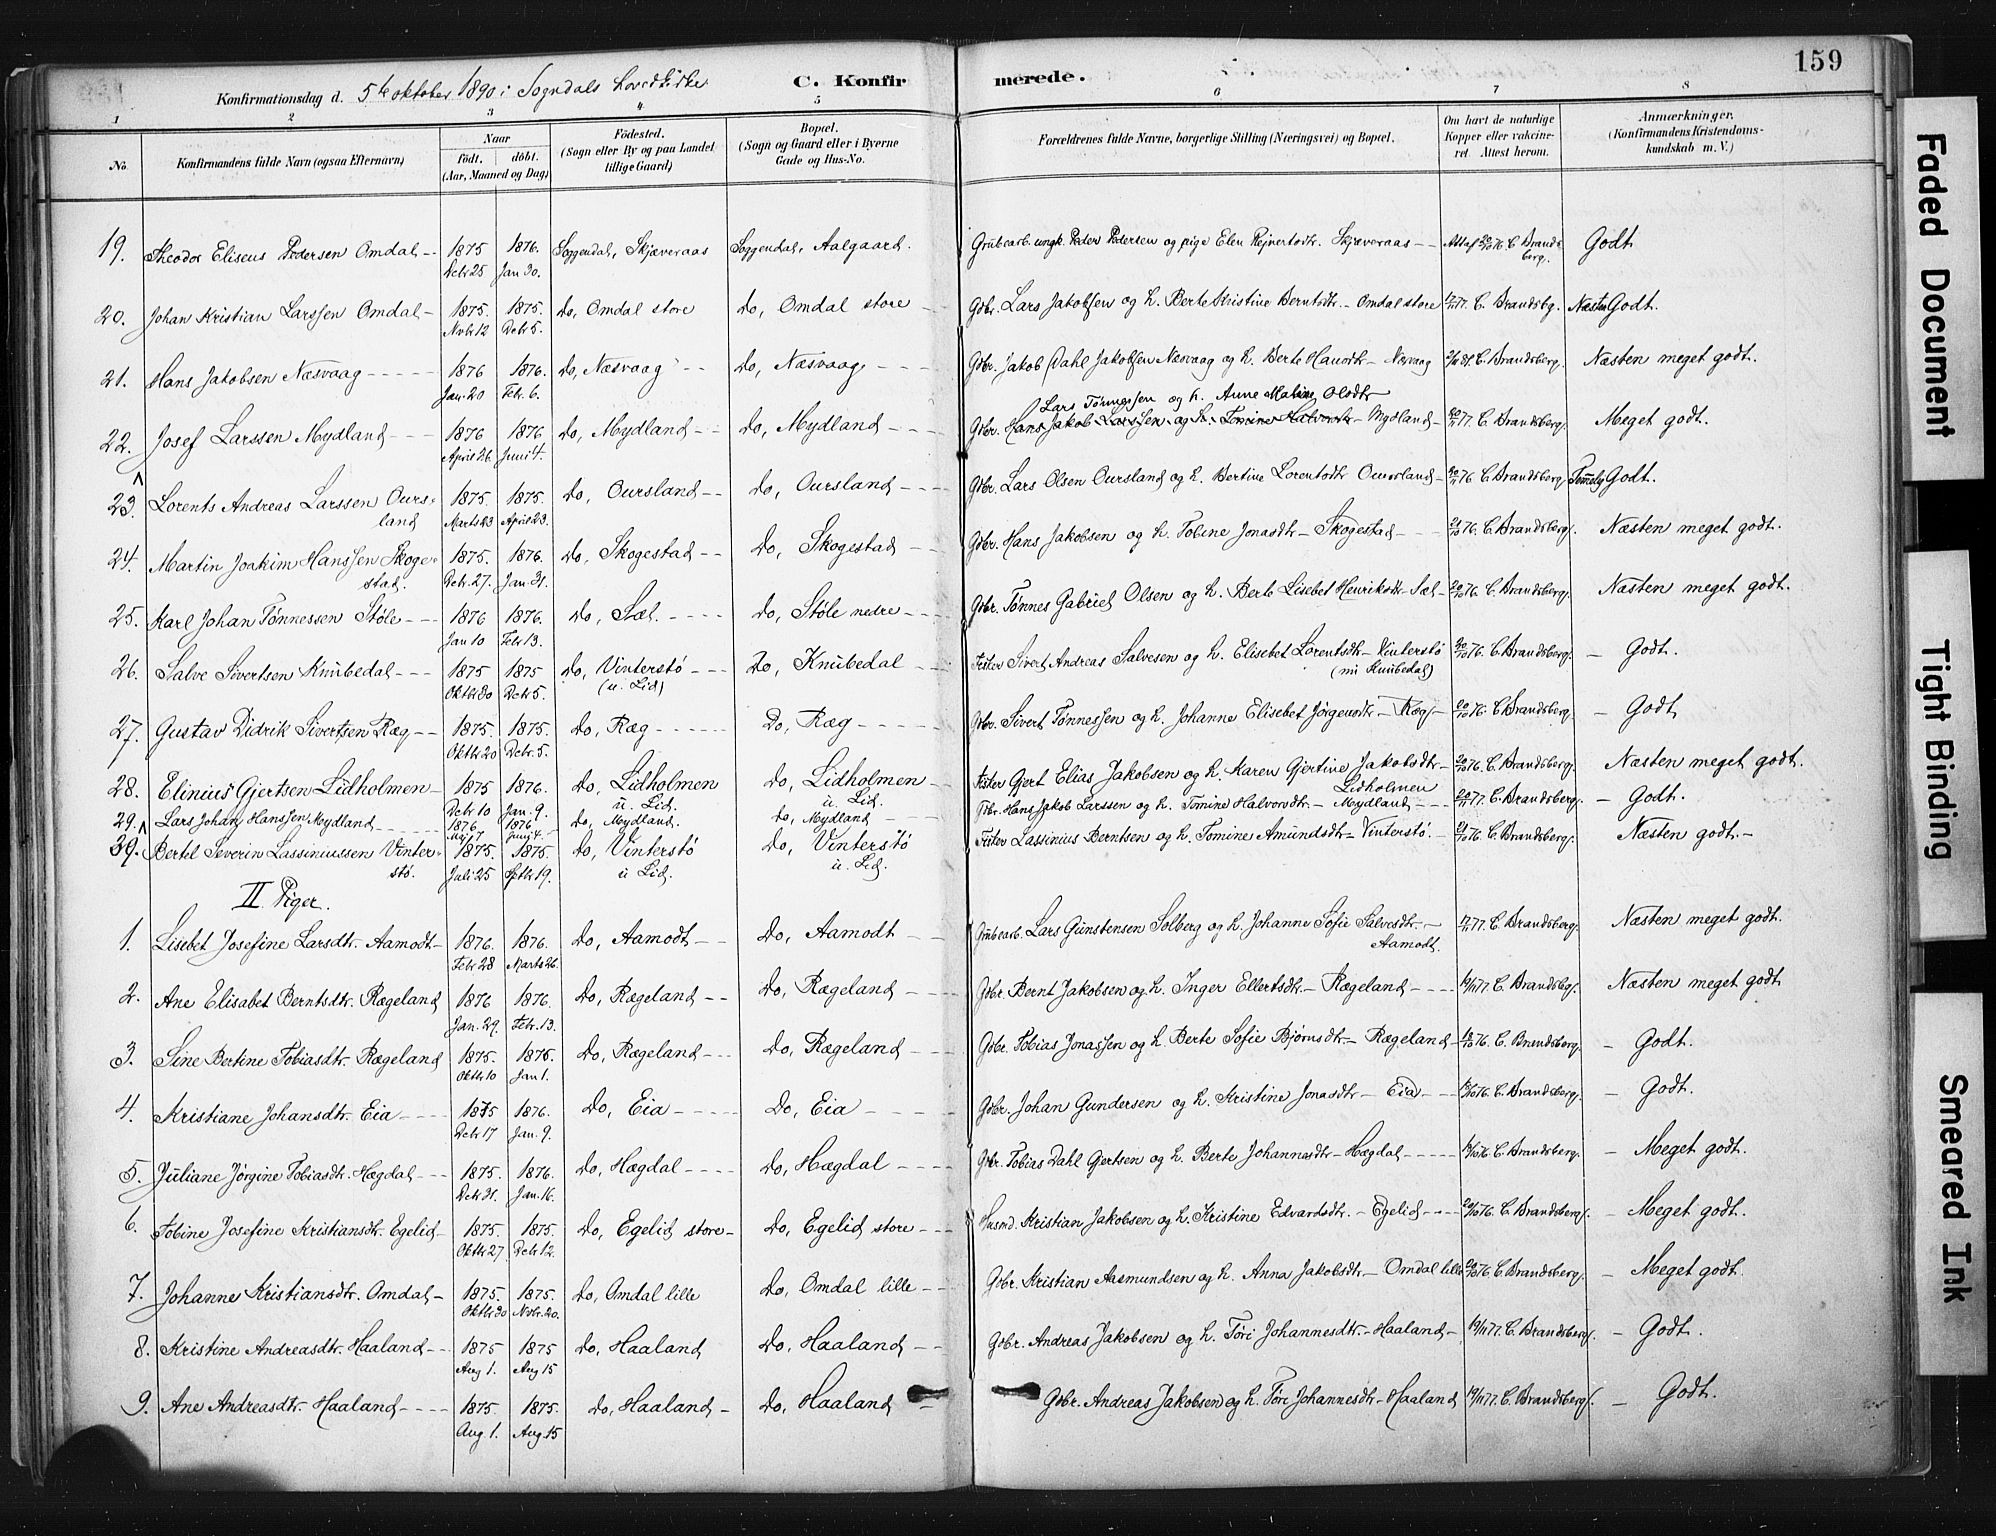 159
Konfirmationsdag d. 5te oktober 1890 i Sogndals hovedkirke C. Konfirmerede.
1 2 3 4 5 6 7 8
No. Konfirmandens fulde Navn (ogsaa Efternavn) Naar født. døbt. (Aar, Maaned og Dag) Fødested. (Sogn eller By og paa Landet tillige Gaard) Bopæl. (Sogn og Gaard eller i Byerne Gade og Hus-No. Forældrenes fulde Navne, borgerlige Stilling (Næringsvei) og Bopæl. Om havt de naturlige Kopper eller vakcineret. Attest herom. Anmærkninger. (Konfirmandens Kristendomskundskab m. V.)
19. Theodor Eliseus Pedersen Omdal 1875 Dcbr 25 1876. Jan 30. Soggendal, Skjæveraas Soggendal, Aalgaard. Grubearb. ungk. Peder Pedersen og pige Elen Rejnertsdtr. Skjæveraas C. Brandsberg. Godt
20. Johan Kristian Larssen Omdal 1875. Novbr 12 1875. Dcbr 5. Do, Omdal store Do, Omdal store Gbr. Lars Jakobsen og h. Berte Kristine Berntsdtr. Omdal store C. Brandsbg. Næsten Godt.
21. Hans Jakobsen Næsvaag 1876 Jan. 20 1876. Febr. 6. Do, Næsvaag Do, Næsvaag Gbr. Jakob Dahl Jakobsen Næsvaag og h. Berte Hansdtr Næsvaag C. Brandsberg. Næsten meget godt.
Lars Tønnessen og h. Anne Malene Olsdtr
22. Josef Larssen Mydland 1876 April 26 1876 Juni 4. Do, Mydland Do, Mydland Gbr. Hans Jakob Larssen og h. Tomine Halvorsdtr Mydland C. Brandsberg. Meget godt.
23. Lorents Andreas Larssen Oursland 1875. Marts 23 1875. April 23. Do, Oursland Do, Oursland Gbr. Lars Olsen Oursland og h. Bertine Lorentsdtr Oursland C. Brandsberg. Temelig Godt.
24. Martin Joakim Hanssen Skogestad. 1875. Dcbr. 27. 1876. Jan. 31. Do, Skogestad Do, Skogestad Gbr. Hans Jakobsen og h. Tobine Jonasdtr Skogestad C. Brandsberg. Næsten meget godt.
25. Karl Johan Tønnessen Støle 1876 Jan 10 1876. Febr 13. Do, Sæt. Do, Støle nedre Gbr. Tønnes Gabriel Olsen og h. Berte Lisebet Henriksdtr Sæt C. Brandsberg. Næsten meget godt.
26. Salve Sivertsen Knubedal 1875 Oktbr 30 1875 Dcbr 5. Do, Vinterstø (u. Lid) Do, Knubedal Fisker Sivert Andreas Salvesen og h. Elisebet Lorentsdtr Vinterstø (nu Knubedal) C. Brandsberg. Godt.
27. Gustav Didrik Sivertsen Ræg 1875. Oktbr 20 1875. Dcbr. 5. Do, Ræg Do, Ræg Gbr. Sivert Tønnessen og h. Johanne Elisebet Jørgensdtr Ræg C. Brandsberg. Godt
28. Elinius Gjertsen Lidholmen 1875 Dcbr 10 1876. Jan. 9. Do, Lidholmen u. Lid. Do, Lidholmen u. Lid. Fisker Gjert Elias Jakobsen og h. Karen Gjertine Jakobsdtr Lidholmen C. Brandsberg. Næsten meget godt.
29. Lars Johan Hanssen Mydland 1876 Maj 7 1876 Juni 4. Do, Mydland. Do, Mydland Gbr. Hans Jakob Larssen og h. Tomine Halvorsdtr. Mydland C. Brandsberg. Godt.
39. Bertel Severin Lassiniussen Vinterstø. 1875. Juli 25 1875. Sptbr 19. Do, Vinterstø u Lid. Do, Vinterstø u. Lid. Fisker Lassinius Berntsen og h. Tomine Amundsdtr Vinterstø. C. Brandsberg. Næsten godt.
II Piger.
1. Lisebet Josefine Larsdtr. Aamodt 1876. Febr 28 1876. Marts 26. Do, Aamodt Do, Aamodt Grubearb. Lars Gunstensen Solberg og h. Johanne Sofie Salvesdtr. Aamodt. C. Brandsberg. Næsten meget godt.
2. Ane Elisabet Berntsdtr. Rægeland 1876 Jan. 29 1876. Febr. 13. Do, Rægeland Do, Rægeland Gbr. Bernt Jakobsen og h. Inger Ellertsdtr. Rægeland C. Brandsbg. Næsten meget godt
3. Sine Bertine Tobiasdtr. Rægeland 1875. Oktbr 10 1876. Jan 1. Do, Rægeland Do, Rægeland Gbr. Tobias Jonassen og h. Berte Sofie Bjørnsdtr. Rægeland C. Brandsberg. Godt.
4. Kristiane Johansdtr. Eia 1875 Dcbr 17 1876. Jan. 9. Do, Eia Do, Eia Gbr. Johan Gundersen og h. Kristine Jonasdtr Eia C. Brandsberg. Godt.
5. Juliane Jørgine Tobiasdtr. Hægdal 1875. Dcbr 21. 1876. Jan. 16. Do, Hægdal Do, Hægdal Gbr. Tobias Dahl Gjertsen og h. Berte Johannesdtr Hægdal C. Brandsberg. Meget godt.
6. Tobine Josefine Kristiansdtr. Egelid 1875. Oktbr 27 1875. Dcbr 12. Do, Egelid store Do, Egelid store Husmd. Kristian Jakobsen og h. Kristine Edvardsdtr. Egelid C. Brandsberg. Meget godt.
7. Johanne Kristiansdtr. Omdal 1875. Oktbr 30 1875. Novbr. 20. Do, Omdal lille Do, Omdal lille Gbr. Kristian Aasmundsen og h. Anna Jakobsdtr Omdal lille C. Brandsberg. Meget godt.
8. Kristine Andreasdtr. Haaland 1875 Aug 1. 1875 Aug 15 Do, Haaland Do, Haaland Gbr. Andreas Jakobsen og h. Tøri Johannesdtr. Haaland 19/1177. C. Brandsberg. Godt.
9. Ane Andreasdtr. Haaland 1875 Aug. 1. 1875. Aug. 15 Do, Haaland Do, Haaland Gbr. Andreas Jakobsen og h. Tøri Johannesdtr. Haaland 19/1177. C. Brandsberg. Godt.
Faded Document
Tight Binding
Smeared Ink